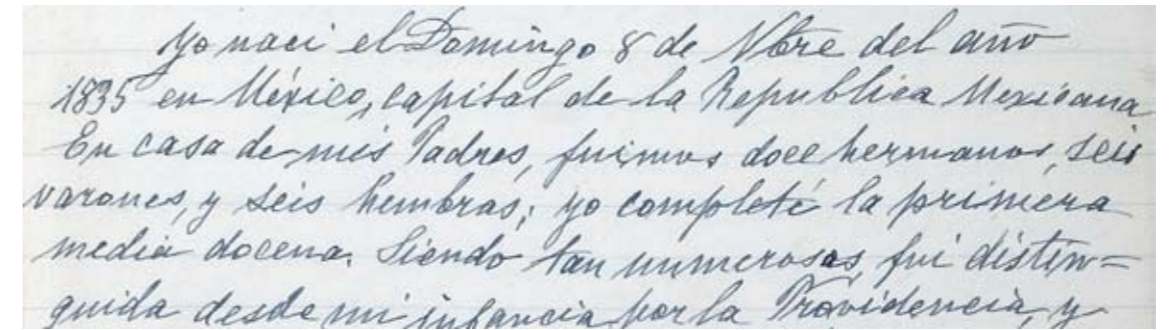 Yo naci el Domingo 8 de Nbre del año
1835 en México, capital de la Republica Mexicana
En casa de mis Padres, fuimos doce hermanos, seis
varones, y seis hembras; yo completé la primera
media docena. Siendo tan numerosas, fui distin=
guida desde mi infancia por la Providencia, y